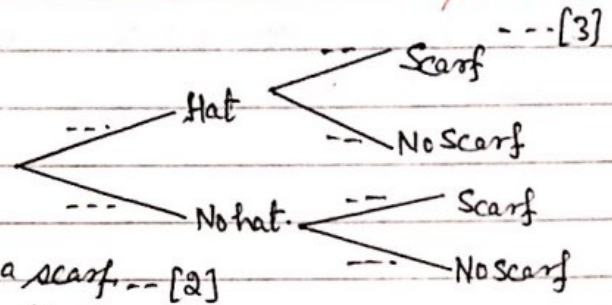 --- [3]
-- Scarf
--- Hat
-- No Scarf
--- No hat.
-- Scarf
a scarf -- [2]
--- No Scarf